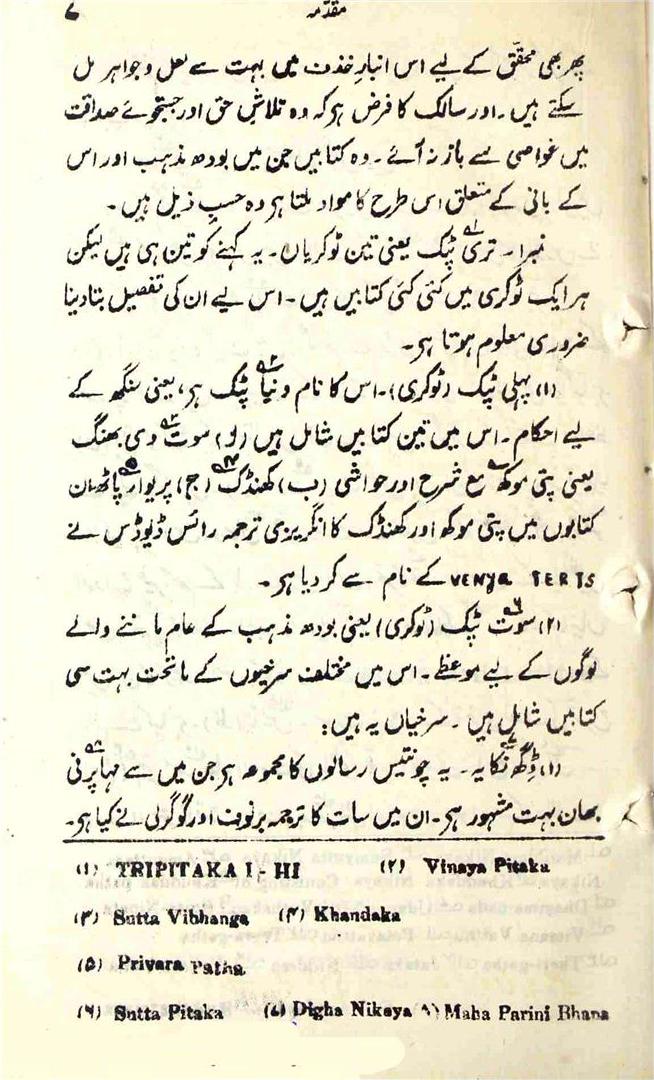 مقدّمہ ۷
پھر بھی محقّق کے لیے اس انبارِ خذف میں بہت سے لعل و جواہر مل
سکتے ہیں۔ اور سالک کا فرض ہر کہ وہ تلاشِ حق اور جستجوئے صداقت
میں غواصی سے باز نہ آئے۔ وہ کتابیں جن میں بودھ مذہب اور اس
کے بانی کے متعلق اس طرح کا مواد ملتا ہر وہ حسبِ ذیل ہیں۔
نمبرا۔ تری پٹک۱؎ یعنی تین ٹوکریاں۔ یہ کہنے کو تین ہی ہیں لیکن
ہر ایک ٹوکری میں کئی کئی کتابیں ہیں۔ اس لیے ان کی تفصیل بتا دینا
ضروری معلوم ہوتا ہر۔
(۱) پہلی پٹک (ٹوکری)۔ اس کا نام ونیا۲؎ پٹک ہر، یعنی سنگھ کے
لیے احکام۔ اس میں تین کتابیں شامل ہیں (ا) سوت۳؎ وی بھنگ
یعنی پتی موکھ مع شرح اور حواشی (ب) کھنڈک۴؎ (ج) پریوار۵؎ پاٹھ ان
کتابوں میں پتی موکھ اور کھنڈک کا انگریزی ترجمہ رائس ڈیوڈس نے
VENYA TERTS کے نام سے کر دیا ہر۔
(۲) سوت۶؎ پٹک (ٹوکری) یعنی بودھ مذہب کے عام ماننے والے
لوگوں کے لیے موعظے۔ اس میں مختلف سرخیوں کے ماتحت بہت سی
کتابیں شامل ہیں۔ سرخیاں یہ ہیں:
(۱) دِگھ نکایہ۷؎۔ یہ چونتیس رسالوں کا مجموعہ ہر جن میں سے مہاپرنی۸؎
بھان بہت مشہور ہر۔ ان میں سات کا ترجمہ برنوف اور گوگرلی نے کیا ہر۔
(۱) TRIPITAKA I - HI (۲) Vinaya Pitaka
(۳) Sutta Vibhanga (۴) Khandaka
(۵) Privara Patha
(۶) Sutta Pitaka (۷) Digha Nikaya (۸) Maha Parini Bhana